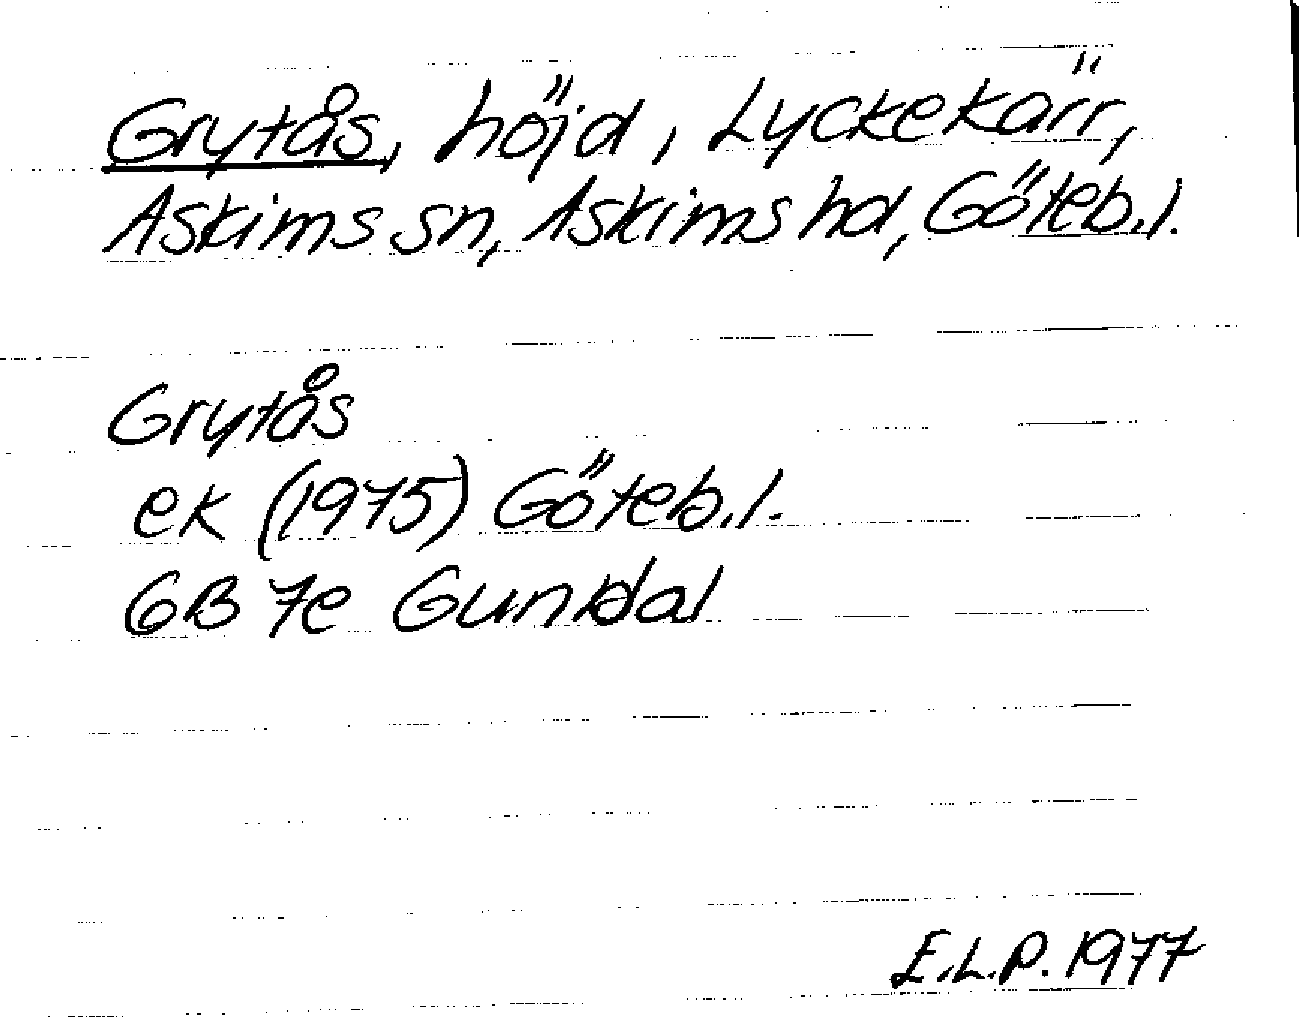 Grytås, höjd, Lyckekärr,
Askims sn, Askims hd, Göteb.l.
Grytås
ek (1975) Göteb.l.
6B 7e Gunddal
E.L.P. 1977